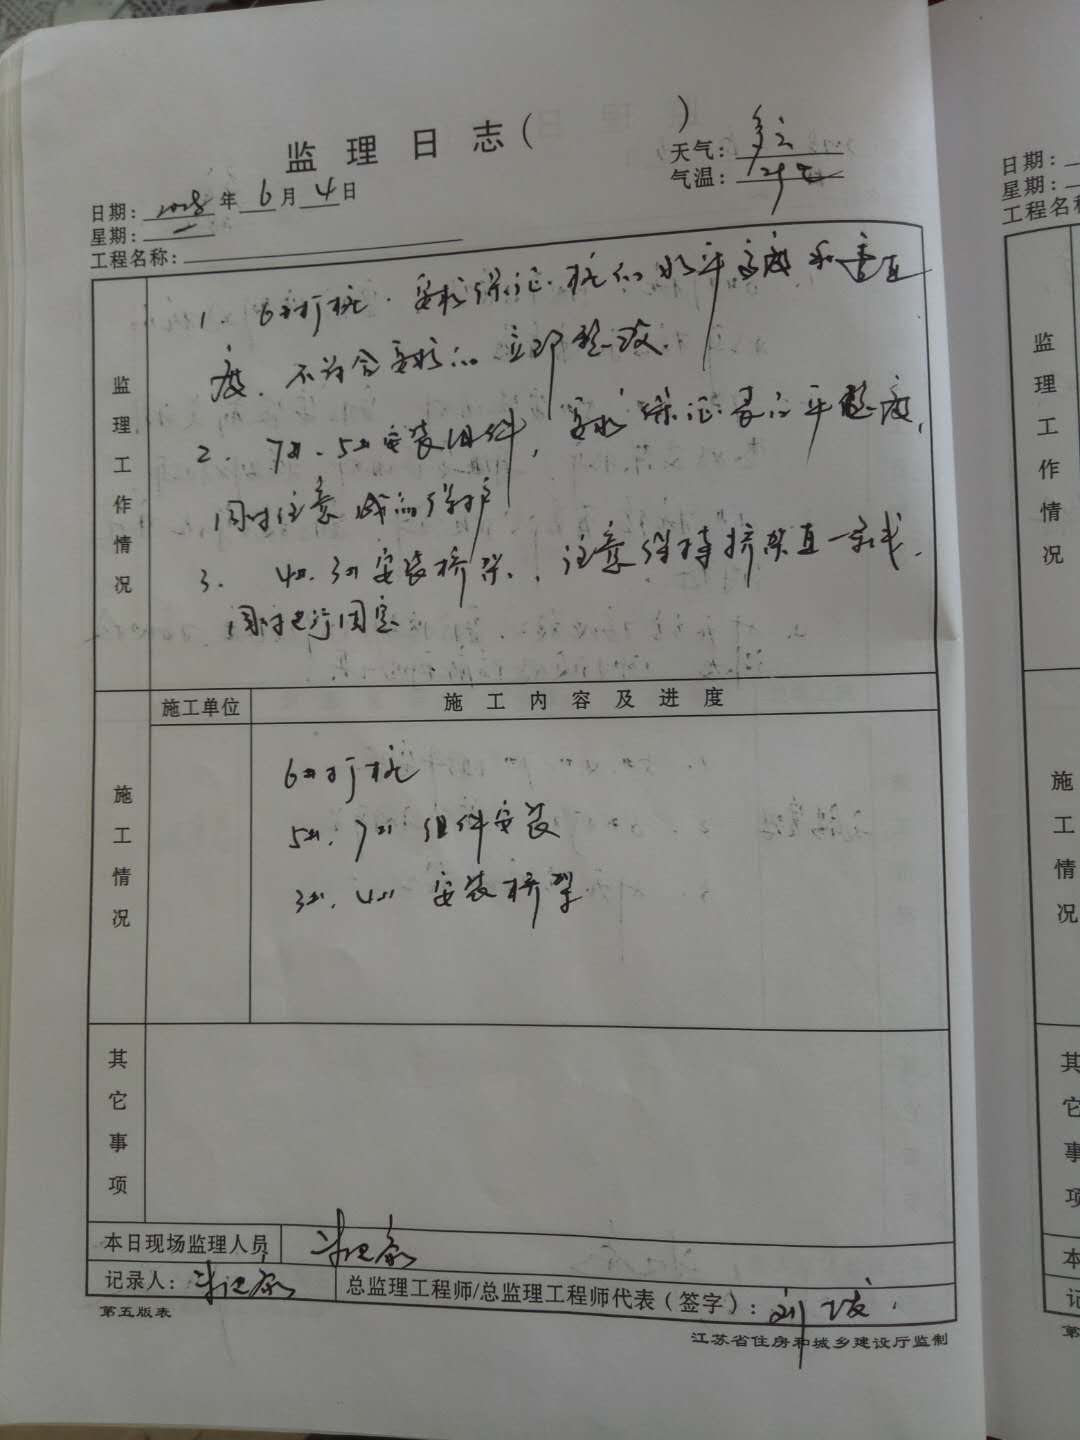 监理日志（ ）
天气：多云
气温：
日期：2018年6月4日
星期：一
工程名称：
监理工作情况
1. 6#打桩．要求保证桩的水平高度和垂直
度．不符合要求的立即整改．
2. 7#．5#安装组件，要求保证表面平整度，
同时注意成品保护
3. 4#．3#安装桥架．注意保持桥架直一条线．
同时进行固定
施工单位 施工内容及进度
施工情况
6#打桩
5#．7# 组件安装
3#．4# 安装桥架
其它事项
本日现场监理人员
记录人： 总监理工程师/总监理工程师代表（签字）：刘
第五版表
江苏省住房和城乡建设厅监制
日期：
星期：
工程名称
监理工作情况
施工情况
其它事项
本
记
第